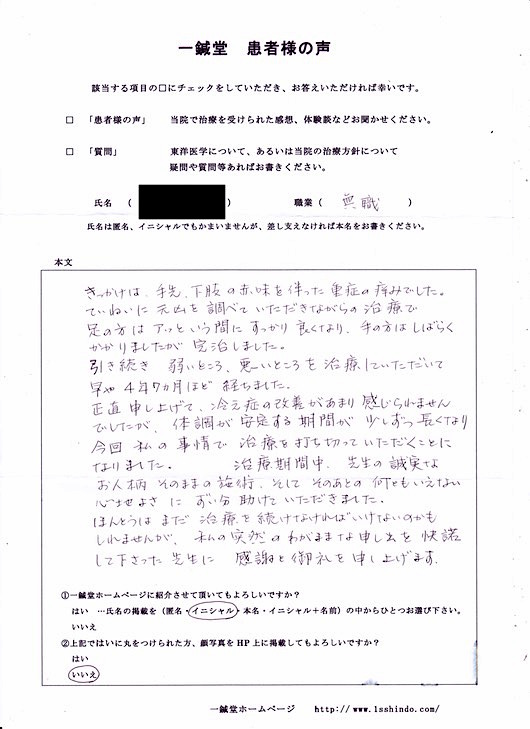 一鍼堂 患者様の声
該当する項目の□にチェックをしていただき、お答えいただければ幸いです。
□ 「患者様の声」 当院で治療を受けられた感想、体験談などお聞かせください。
□ 「質問」 東洋医学について、あるいは当院の治療方針について
疑問や質問等あればお書きください。
氏名 ( ) 職業( 無職 )
氏名は匿名、イニシャルでもかまいませんが、差し支えなければ本名をお書きください。
本文
きっかけは、手先、下肢の赤味を伴った重症の痒みでした。
ていねいに 元凶を調べていただきながらの治療で
足の方はアッという間に すっかり良くなり、手の方はしばらく
かかりましたが 完治しました。
引き続き 弱いところ、悪いところを治療していただいて
早や 4年7カ月ほど 経ちました。
正直申し上げて、冷え症の改善があまり感じられません
でしたが、体調が安定する期間が 少しずつ長くなり
今回 私の事情で 治療を打ち切っていただくことに
なりました。 治療期間中、先生の誠実な
お人柄 そのままの施術、そして そのあとの 何ともいえない
心地よさ に ずい分 助けていただきました。
ほんとうは まだ 治療を続けなければいけないのかも
しれませんが、私の突然のわがままな申し出を 快諾
して下さった先生に 感謝と御礼を申し上げます.
①一鍼堂ホームページに紹介させて頂いてもよろしいですか?
はい …氏名の掲載を(匿名・イニシャル・本名・イニシャル+名前)の中からひとつお選び下さい。
いいえ
②上記ではいに丸をつけられた方、顔写真をHP上に掲載してもよろしいですか?
はい
いいえ
一鍼堂ホームページ http://www.1sshindo.com/